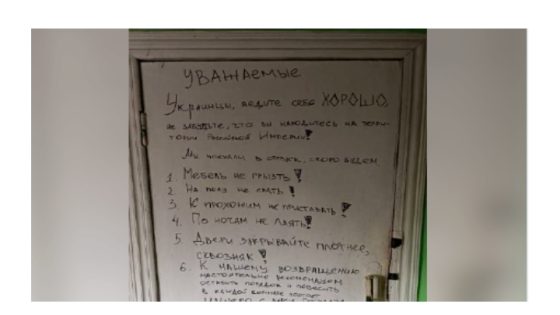 УВАЖАЕМЫЕ
Украинцы, ведите себя ХОРОШО,
не забудьте, что вы находитесь на терри-
тории Российской Империи!
Мы поехали в отпуск, скоро будем
1. Мебель не грызть!
2. На пол не срать!
3. К прохожим не приставать!
4. По ночам не лаять!
5. Двери закрывайте плотнее,
сквозняк!
6. К нашему возвращению
настоятельно рекомендуем
оставить порядок и повесить
в каждой комнате
нашего